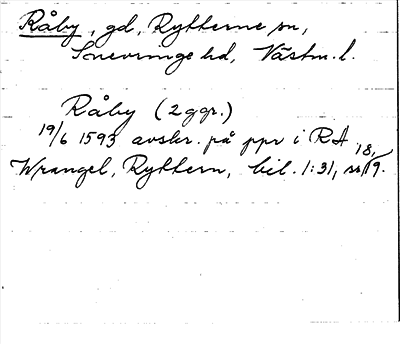 Råby, gd, Rytterne sn,
Snevringe hd, Västm. l.
Råby (2 ggr.)
19/6 1593 avskr. på ppr i RA
Wrangel, Ryttern, bil. 1:31, s. 18, 19.